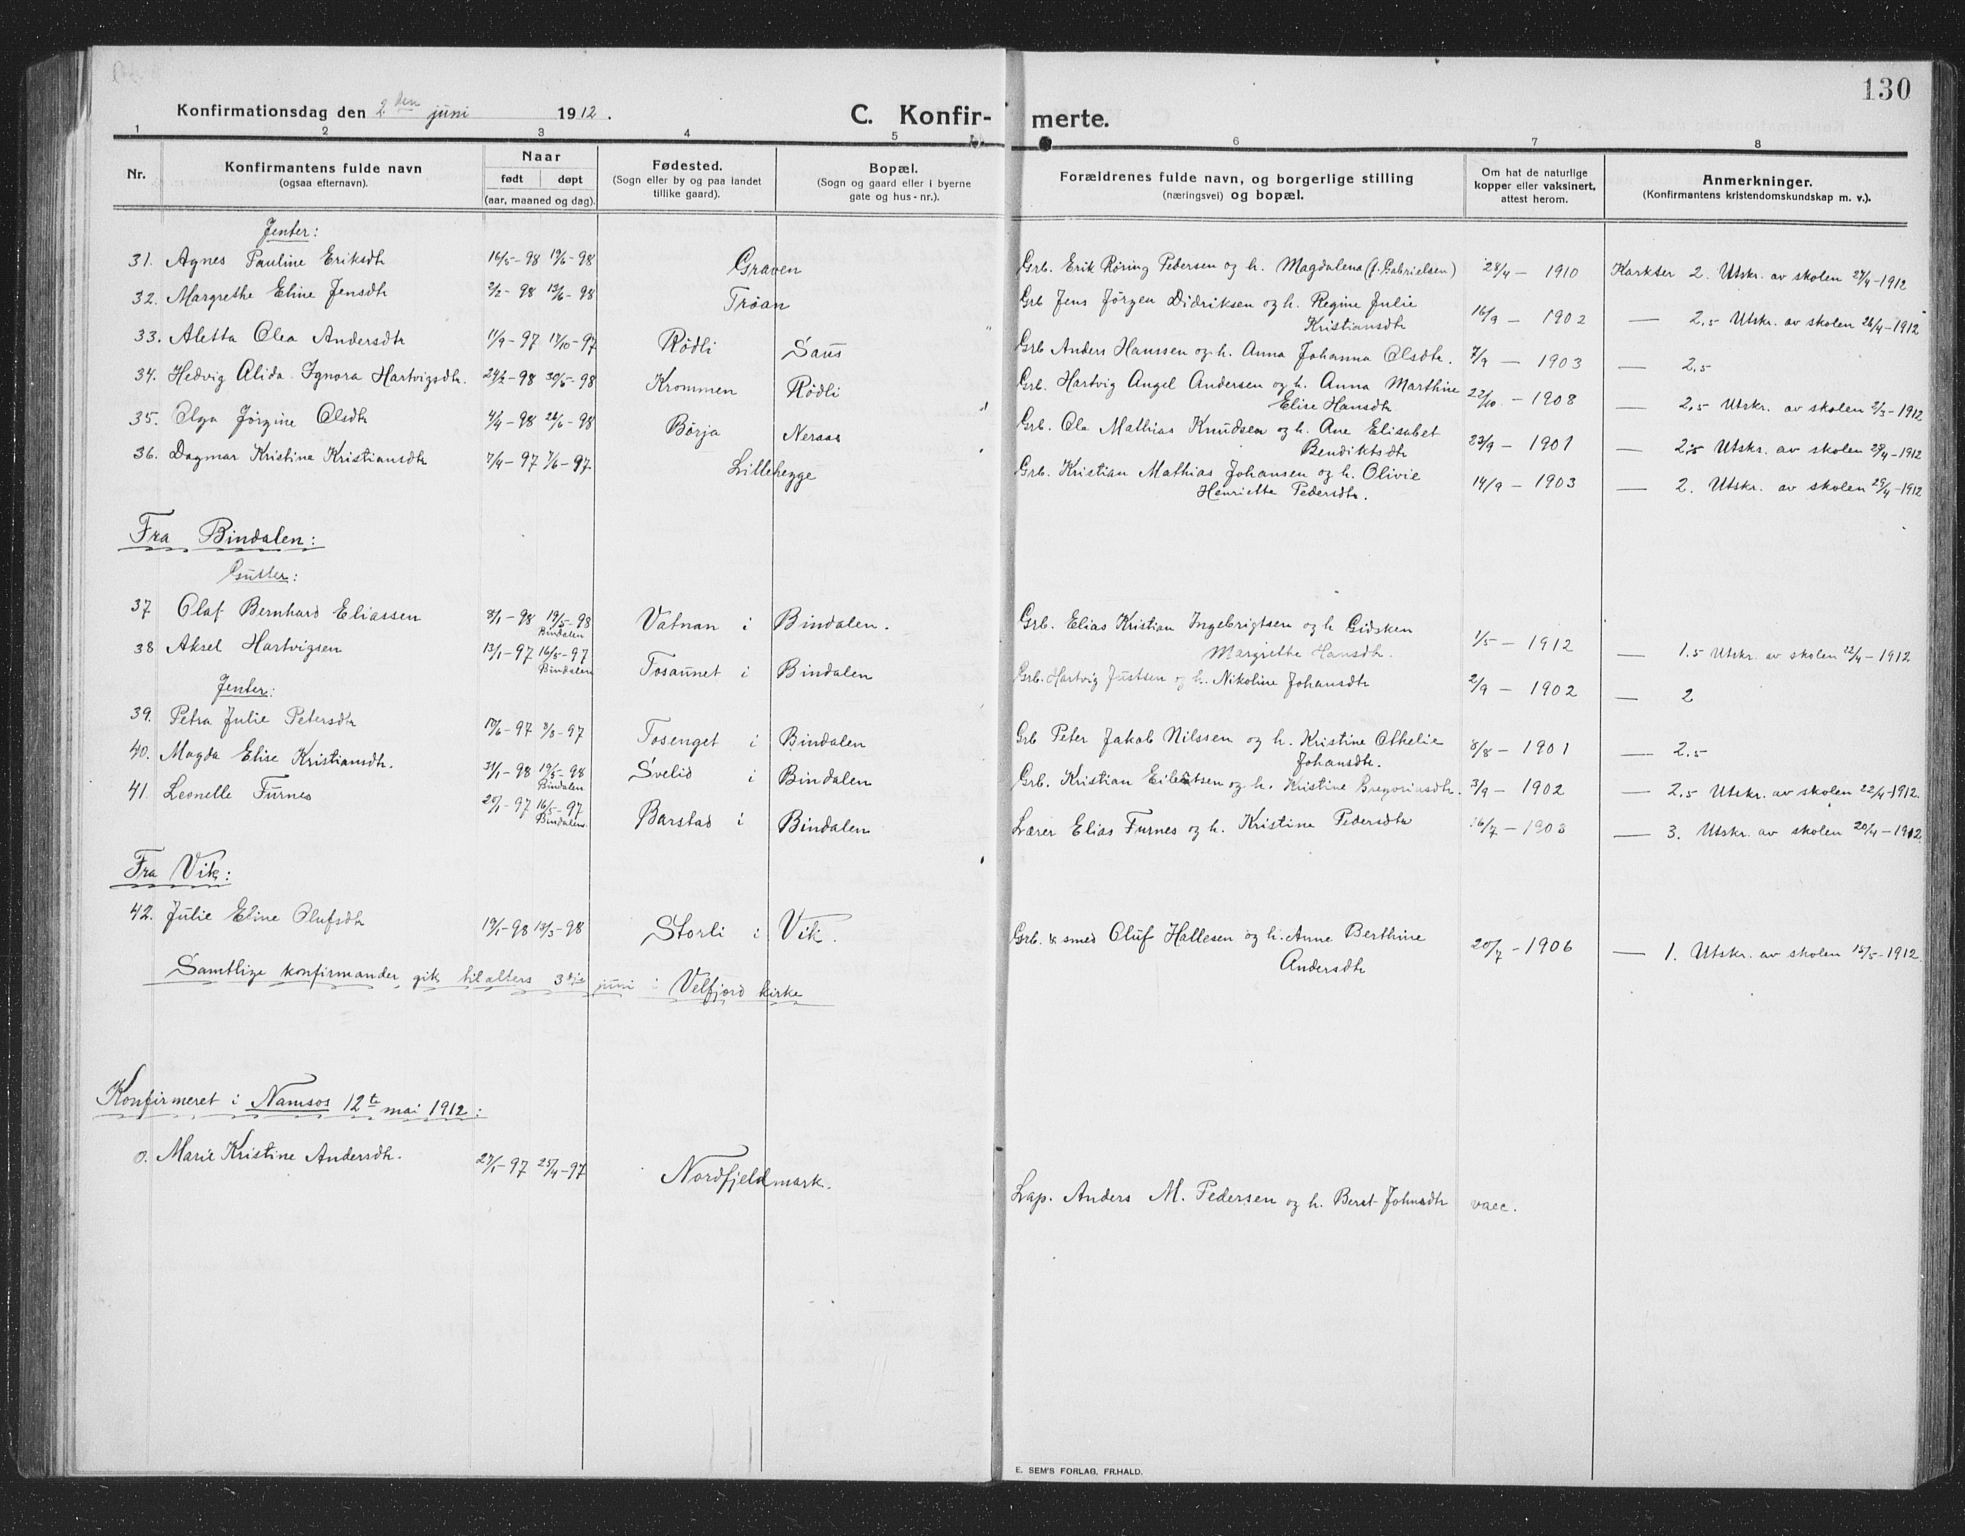 130
Konfirmationsdag den 2den juni 1912. C. Konfir- merte.
1 2 3 4 5 6 7 8
Nr. Konfirmantens fulde navn (ogsaa efternavn). Naar født døpt (aar, maaned og dag). Fødested. (Sogn eller by og paa landet tillike gaard). Bopæl. (Sogn og gaard eller i byerne gate og hus-nr.). Forældrenes fulde navn, og borgerlige stilling (næringsvei) og bopæl. Om hat de naturlige kopper eller vaksinert, attest herom. Anmerkninger. (Konfirmantens kristendomskundskap m. v.).
Jenter:
31. Agnes Pauline Eriksdtr 16/5-98 19/6-98 Graven Grb. Erik Røring Pedersen og h. Magdalena (f. Gabrielsen) 28/4 - 1910 Karkter 2. Utskr. av skolen 27/4-1912
32. Margrethe Eline Jensdtr 2/2-98 13/6-98 Trøan Grb Jens Jørgen Didriksen og h. Regine Julie Kristiansdtr 16/9 - 1902 — 2,5 Utskr. av skolen 26/4-1912
33. Aletta Olea Andersdtr 11/9-97 17/10-97 Rødli Saus Grb Anders Hanssen og h. Anna Johanna Olsdtr. 7/9 - 1903 — 2,5
34. Hedvig Alida Ignora Hartvigsdtr. 24/2-98 30/5-98 Krommen Rødli Grb. Hartvig Angel Andersen og h. Anna Marthine Elise Hansdtr 22/10 - 1908 — 2,5 Utskr. av skolen 2/5-1912
35. Olga Jørgine Olsdtr 4/4-98 26/6-98 Børja Neraas Grb. Ola Mathias Knudsen og h. Ane Elisabet Bendiktsdtr 23/9 - 1901 — 2,5 Utskr. av skolen 29/4-1912
36. Dagmar Kristine Kristiansdtr 7/4-97 7/6-97 Lillehegge Grb. Kristian Mathias Johansen og h. Olivie Henriette Pedersdtr. 14/9 - 1903 — 2. Utskr. av skolen 29/4-1912
Fra Bindalen:
Gutter:
37 Olaf Bernhard Eliassen 8/1-98 19/5-98 Bindalen Vatnan i Bindalen. Grb. Elias Kristian Ingebrigtsen og h Gidsken Margrethe Hansdtr. 1/5 - 1912 — 1.5 Utskr. av skolen 22/4-1912
38 Aksel Hartvigsen 13/1-97 16/5-97 Bindalen Tosaunet i Bindalen Grb. Hartvig Justsen og h. Nikoline Johansdtr 2/9 - 1902 — 2
Jenter:
39. Petra Julie Petersdtr 10/6-97 8/8-97 Tosenget i Bindalen Grb Peter Jakob Nilssen og h. Kristine Othelie Johansdtr. 8/8 - 1901 — 2.5
40. Magda Elise Kristiansdtr. 31/1-98 19/5-98 Bindalen Svelid i Bindalen Grb. Kristian Eilertsen og h. Kristine Gregoriusdtr. 3/9 - 1902 — 2.5 Utskr. av skolen 22/4-1912.
41. Leonelle Furnes 20/1-97 16/5-97 Bindalen. Barstad i Bindalen Lærer Elias Furnes og h. Kristine Pedersdtr 16/7 - 1903 — 3. Utskr. av skolen 20/4-1912.
Fra Vik:
42. Julie Eline Olufsdtr 19/1-98 13/3-98 Storli i Vik. Grb. & smed Oluf Hallesen og h. Anne Berthine Andersdtr 20/7 - 1906 — 1. Utskr. av skolen 15/5-1912.
Samtlige konfirmander, gik til alters 3die juni i Velfjord kirke
Konfirmeret i Namsos 12te mai 1912:
0. Marie Kristine Andersdtr. 27/1-97 25/4-97 Nordfjeldmark. Lap. Anders M. Pedersen og h. Beret Johnsdtr vacc.
E. SEM'S FORLAG, FR.HALD.